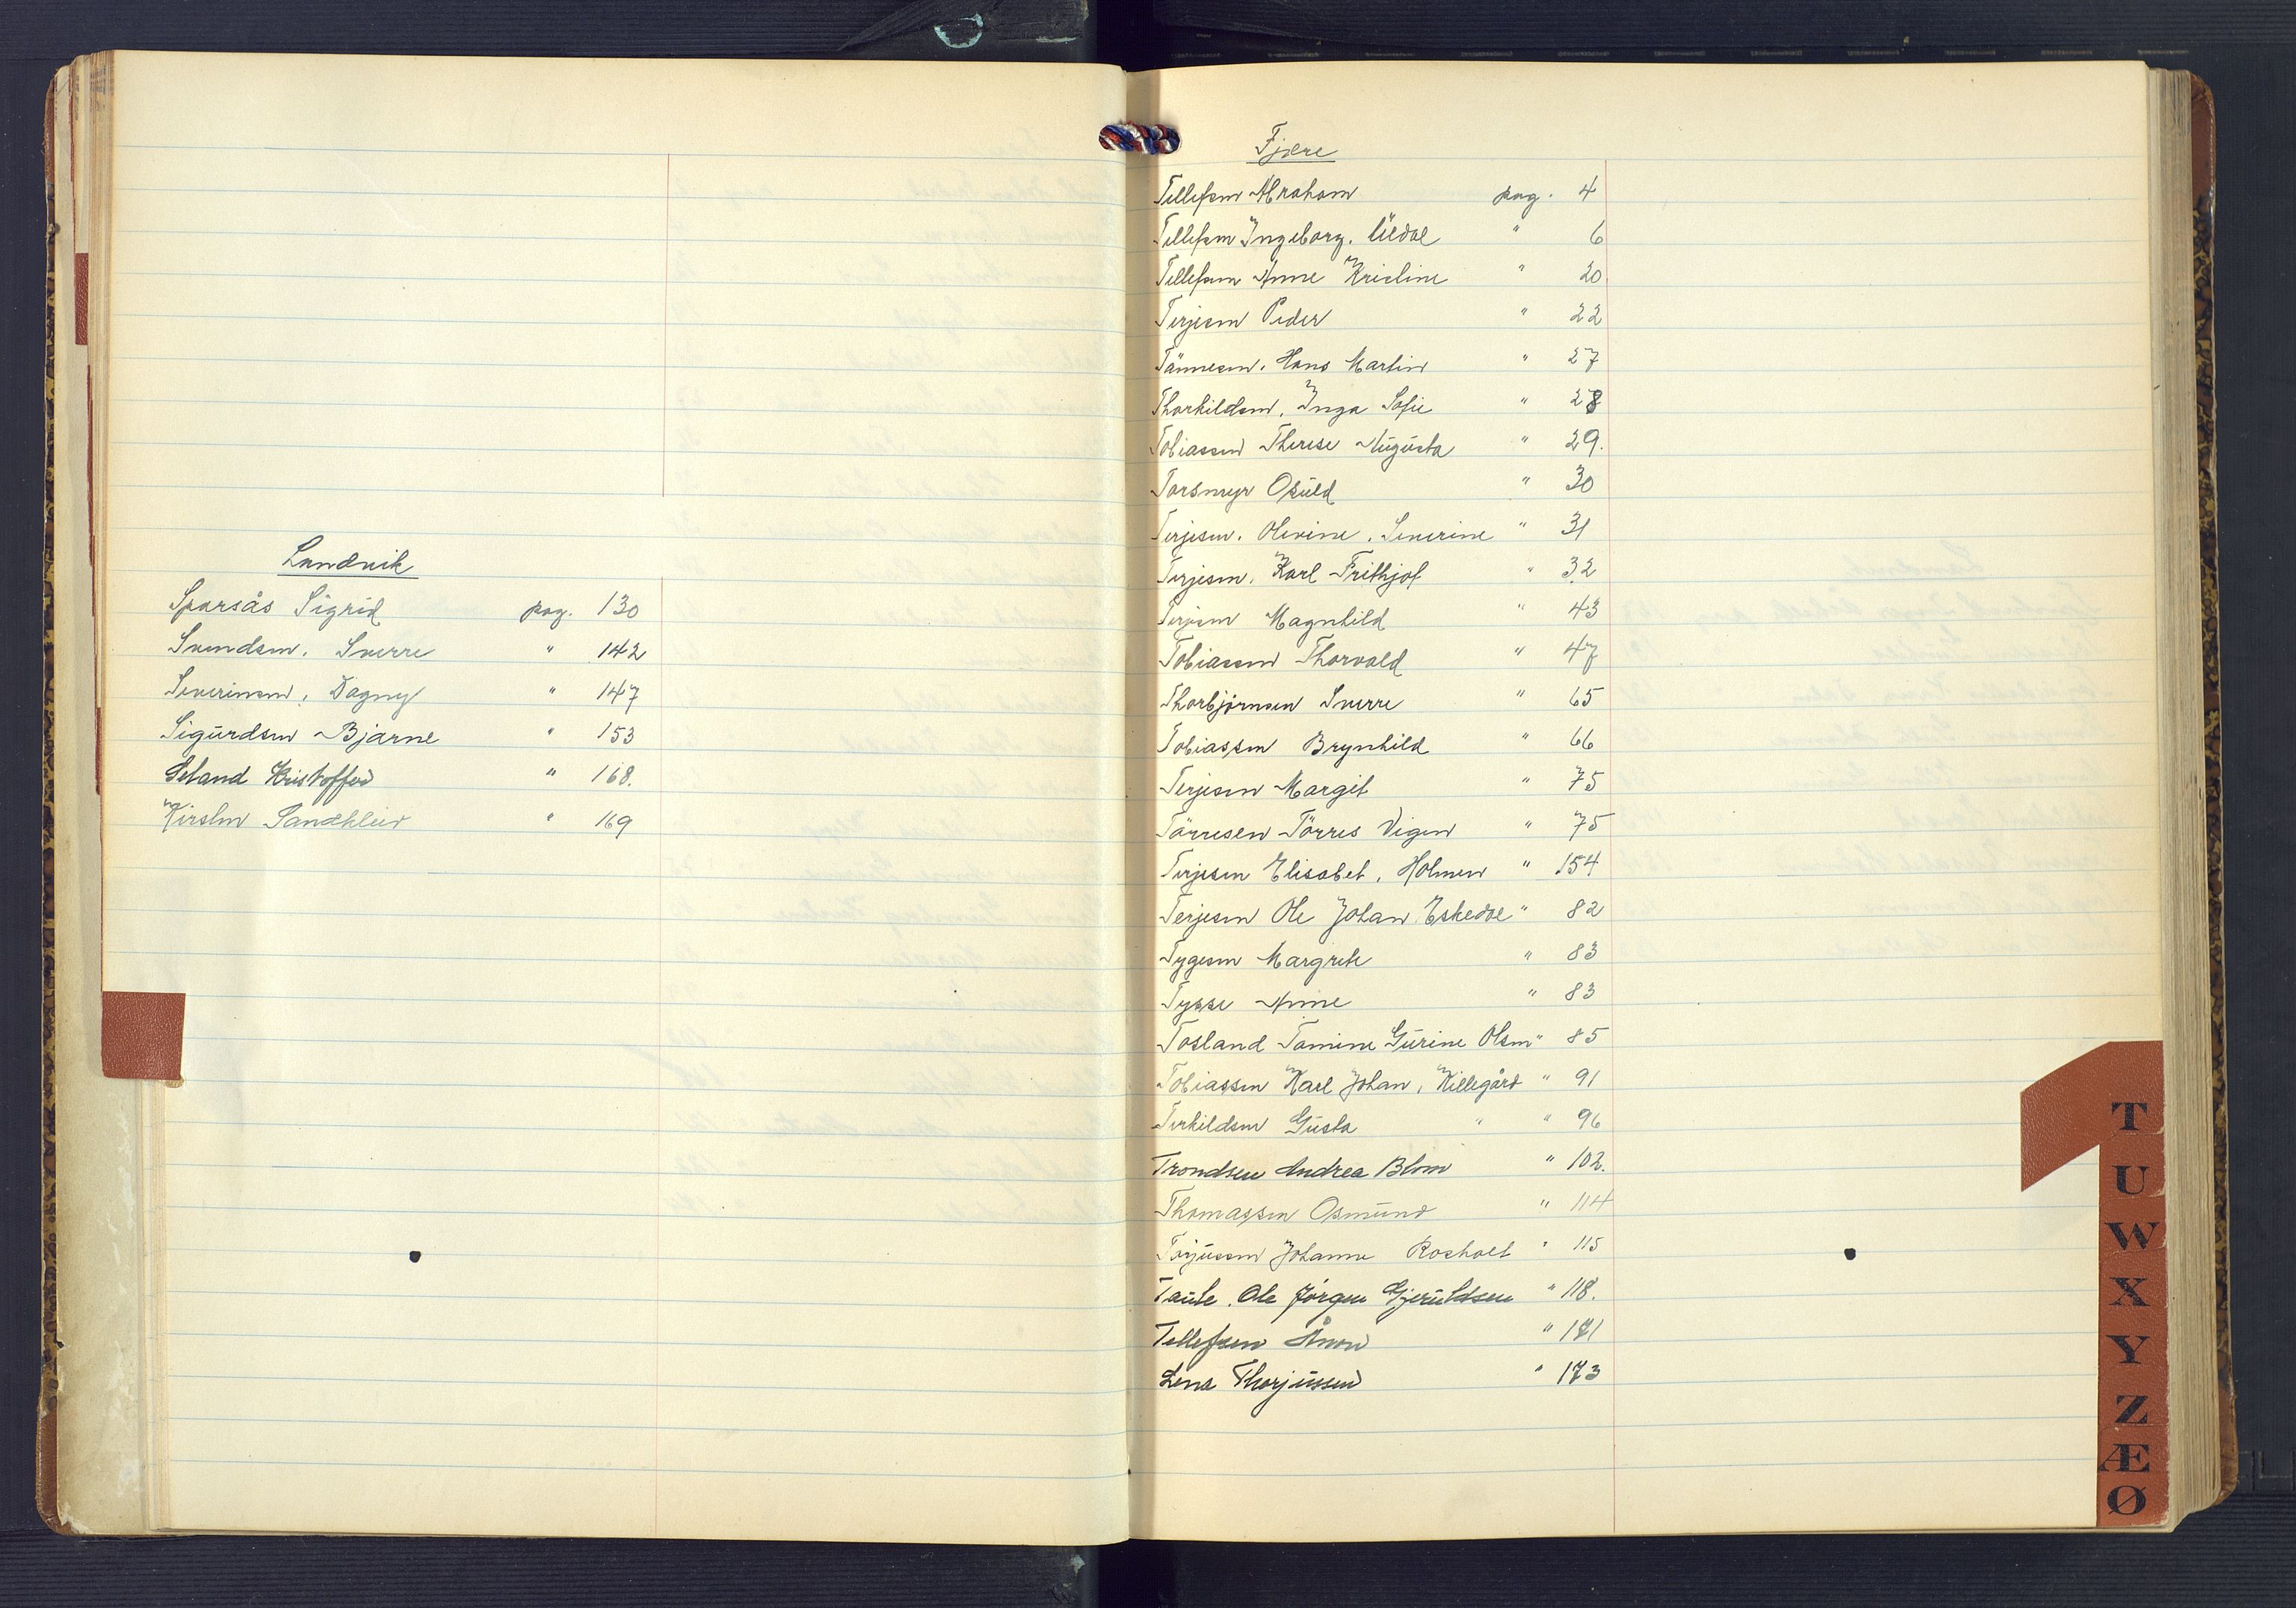 Landvik
Sparsås Sigrid pag. 130
Svendsen. Sverre " 142
Severinsen, Dagny " 147
Sigurdsen Bjarne " 153
Seland Kristoffer " 168.
Kirsten Sandkleiv " 169
Fjære
Tellefsen Abraham pag. 4
Tellefsen Ingeborg. Uldal " 6
Tellefsen Anne Kristine " 20
Terjesen Peder " 22
Tönnesen. Hans Martin " 27
Thorkildsen, Inga Sofie " 28
Tobiassen Therese Augusta " 29.
Torsmyr Osuld " 30
Terjesen. Olevine. Severine " 31
Terjesen. Karl Frithjof " 32
Terjesen Magnhild " 43
Tobiassen Thorvald " 47
Thorbjørnsen Sverre " 65
Tobiassen Brynhild " 66
Terjesen Margit " 75
Tørresen Tørres Vigen " 75
Terjesen Elisabet, Holmen " 154
Terjesen Ole Johan Eskedal " 82
Tygesen Margrete " 83
Tysse Anne " 83
Tosland Tomine Gurine Olsen " 85
Tobiassen Karl Johan, Killegård " 91
Terkildsen Gusta " " 96
Trondsen Andrea Blom " 102.
Thomassen Osmund " 114
Torjussen Johanne Rosholt " 115
Taule. Ole Jørgen Gjeruldsen " 118.
Tellefsen Ånon " 121
Lena Thorjussen " 173
T
U
W
X
Y
Z
Æ
Ø